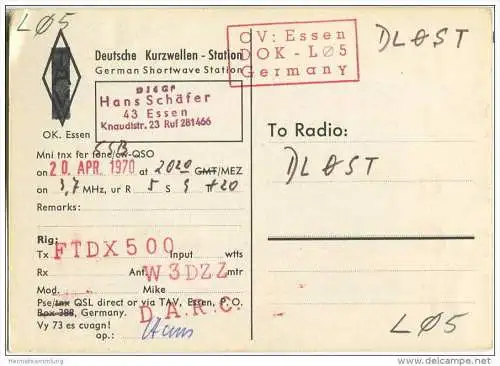 LØ5
Deutsche Kurzwellen-Station
German Shortwave Station
OV: Essen
DOK - LØ5
Germany
DLØST
Hans Schäfer
43 Essen
Knaudtstr. 23 Ruf 281466
OK. Essen
SSB
Mni tnx fer fone/cw-QSO
on 20. APR. 1970 at 2020 GMT/MEZ
on 3,7 MHz, ur R 5 S 9 +20
Remarks:
To Radio:
DLØST
Rig:
Tx FTDX500 Input wtts
Rx Ant. W3DZZ mtr
Mod. Mike
Pse/tnx QSL direct or via TAV, Essen, P.O.
Box 388, Germany. D.A.R.C.
Vy 73 es cuagn!
op.: Hans
LØ5
Hermatsammlung
www.delcampe.net